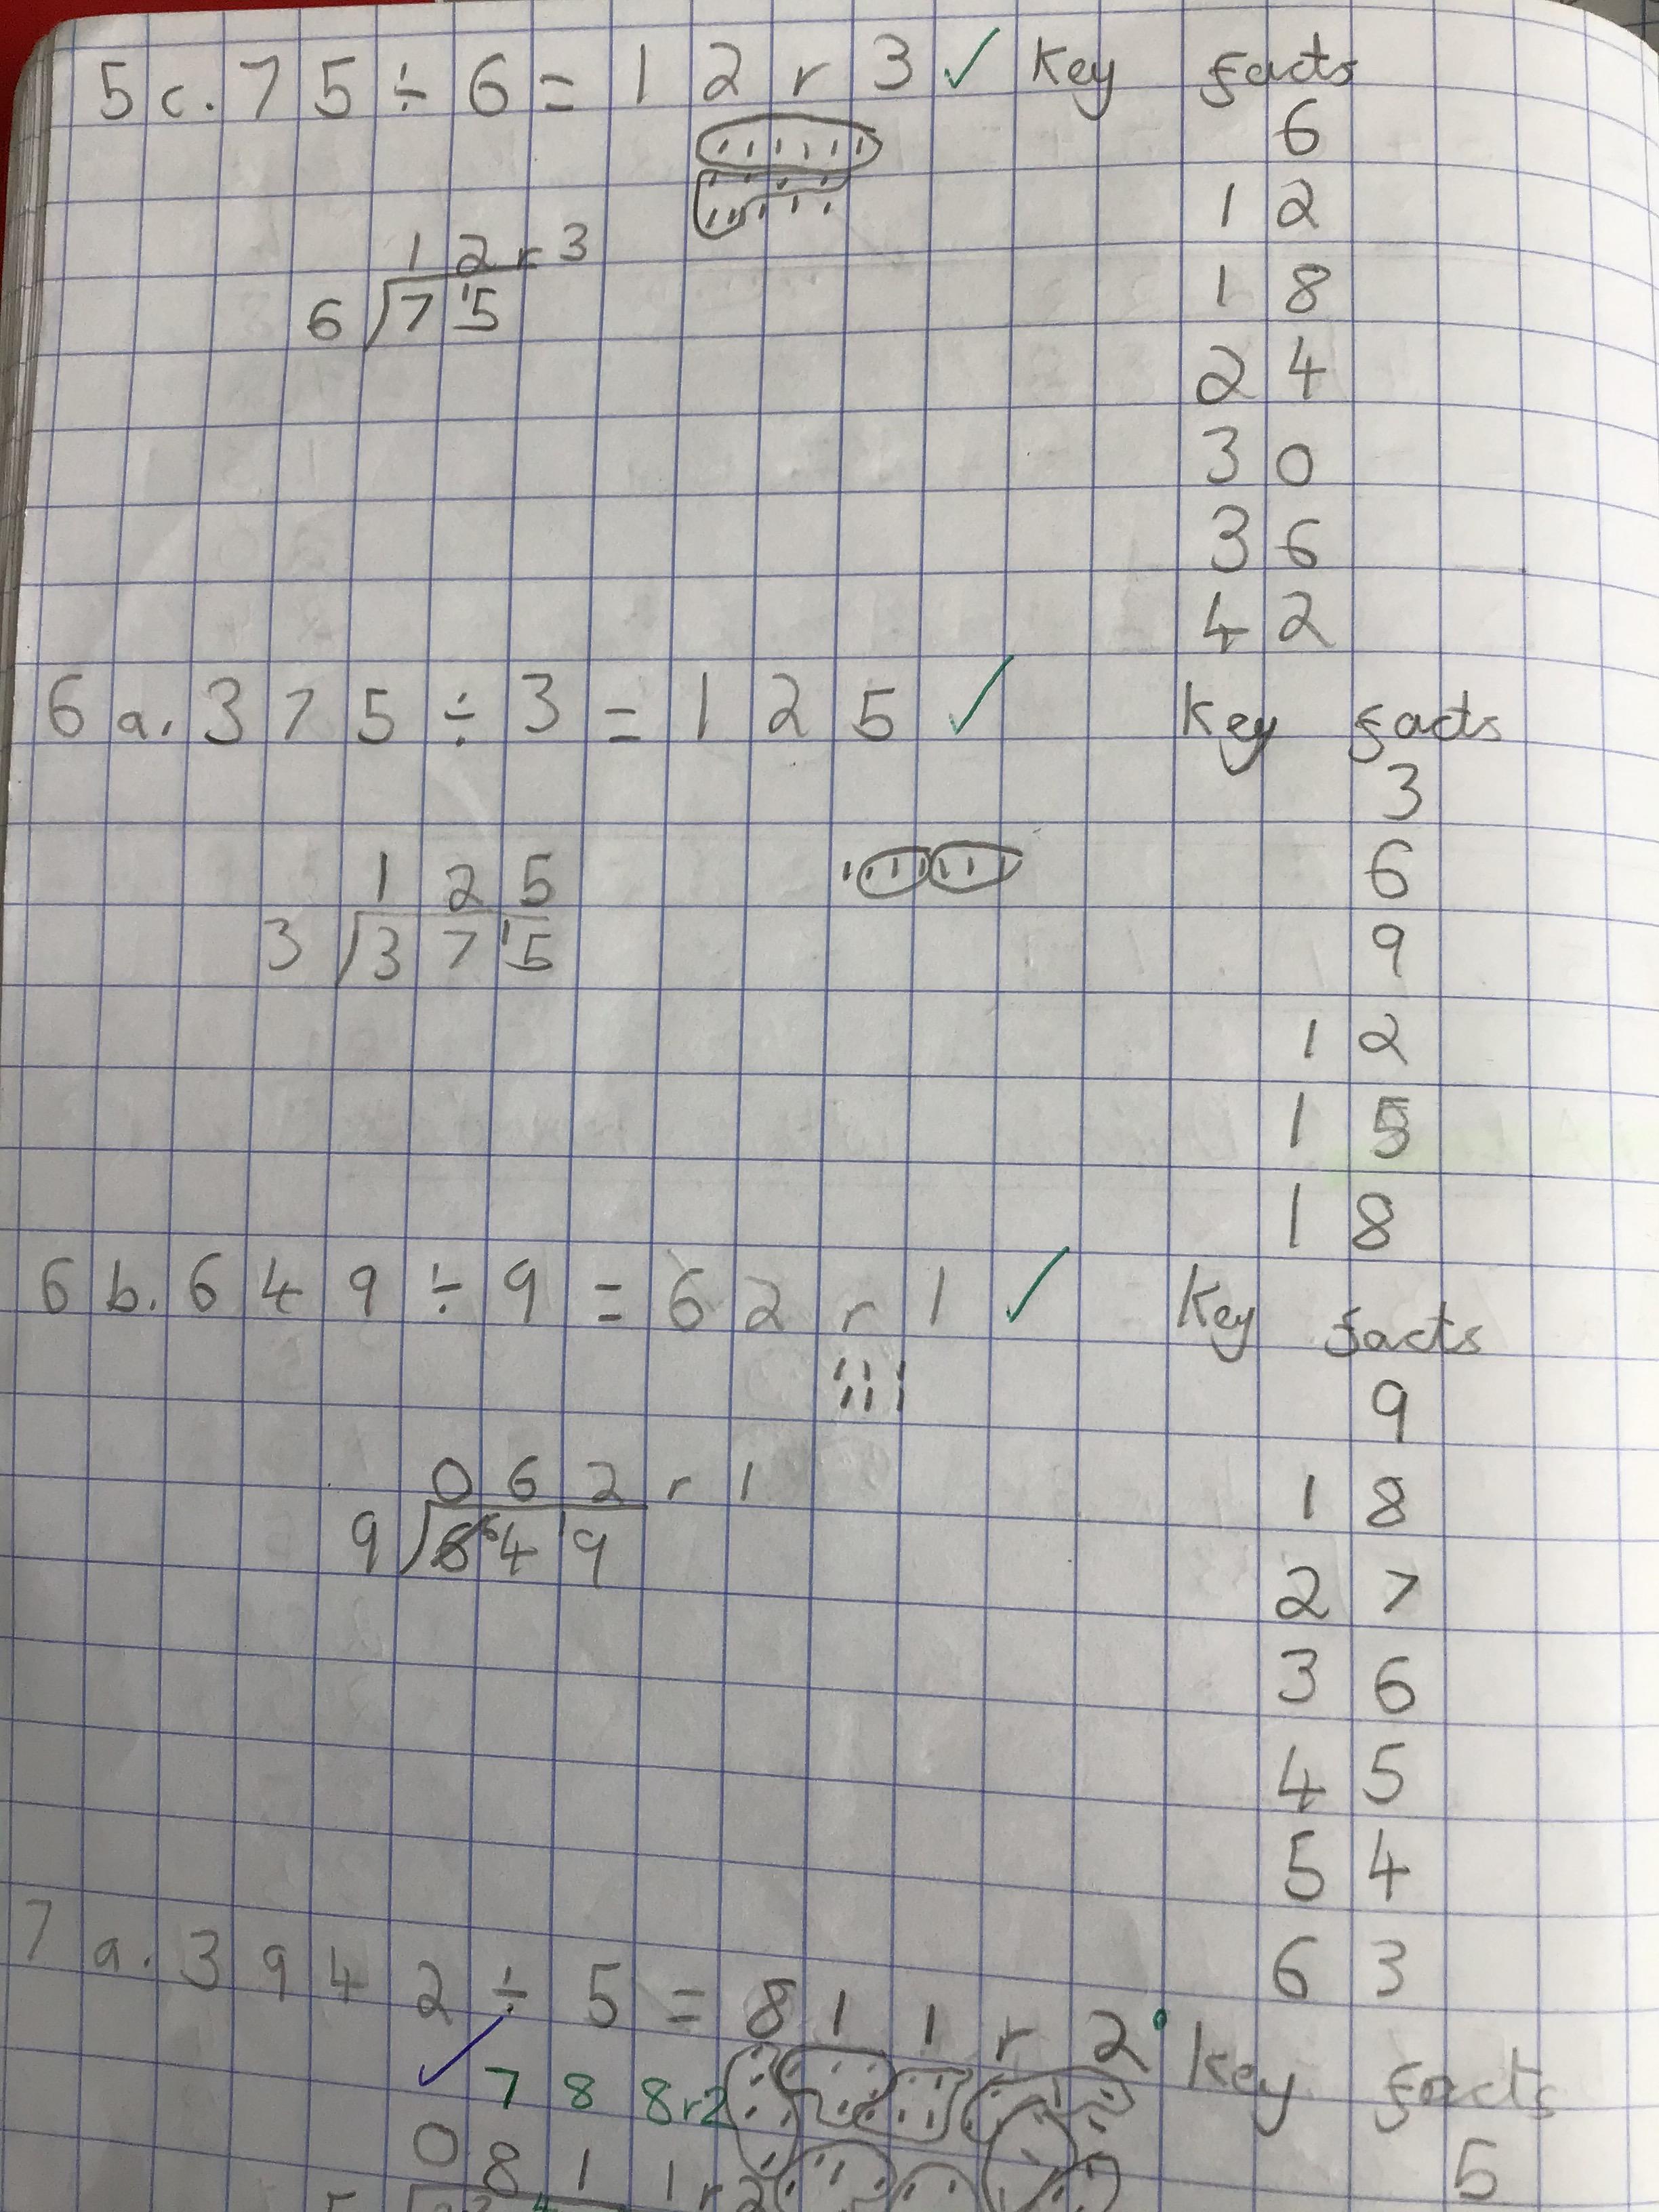 5c. 75 ÷ 6 = 12 r 3 ✓ Key facts
6
12
12 r 3
18
6 75
24
30
36
42
6a. 375 ÷ 3 = 125 ✓ Key facts
3
125
6
3 37¹5
9
12
15
18
6b. 649 ÷ 9 = 62 r 1 ✓ Key facts
9
062 r 1
18
9 6⁶4¹9
27
36
45
54
63
7a. 3942 ÷ 5 = 811 r 2 Key facts
✓ 788 r2
081 1 r2
5